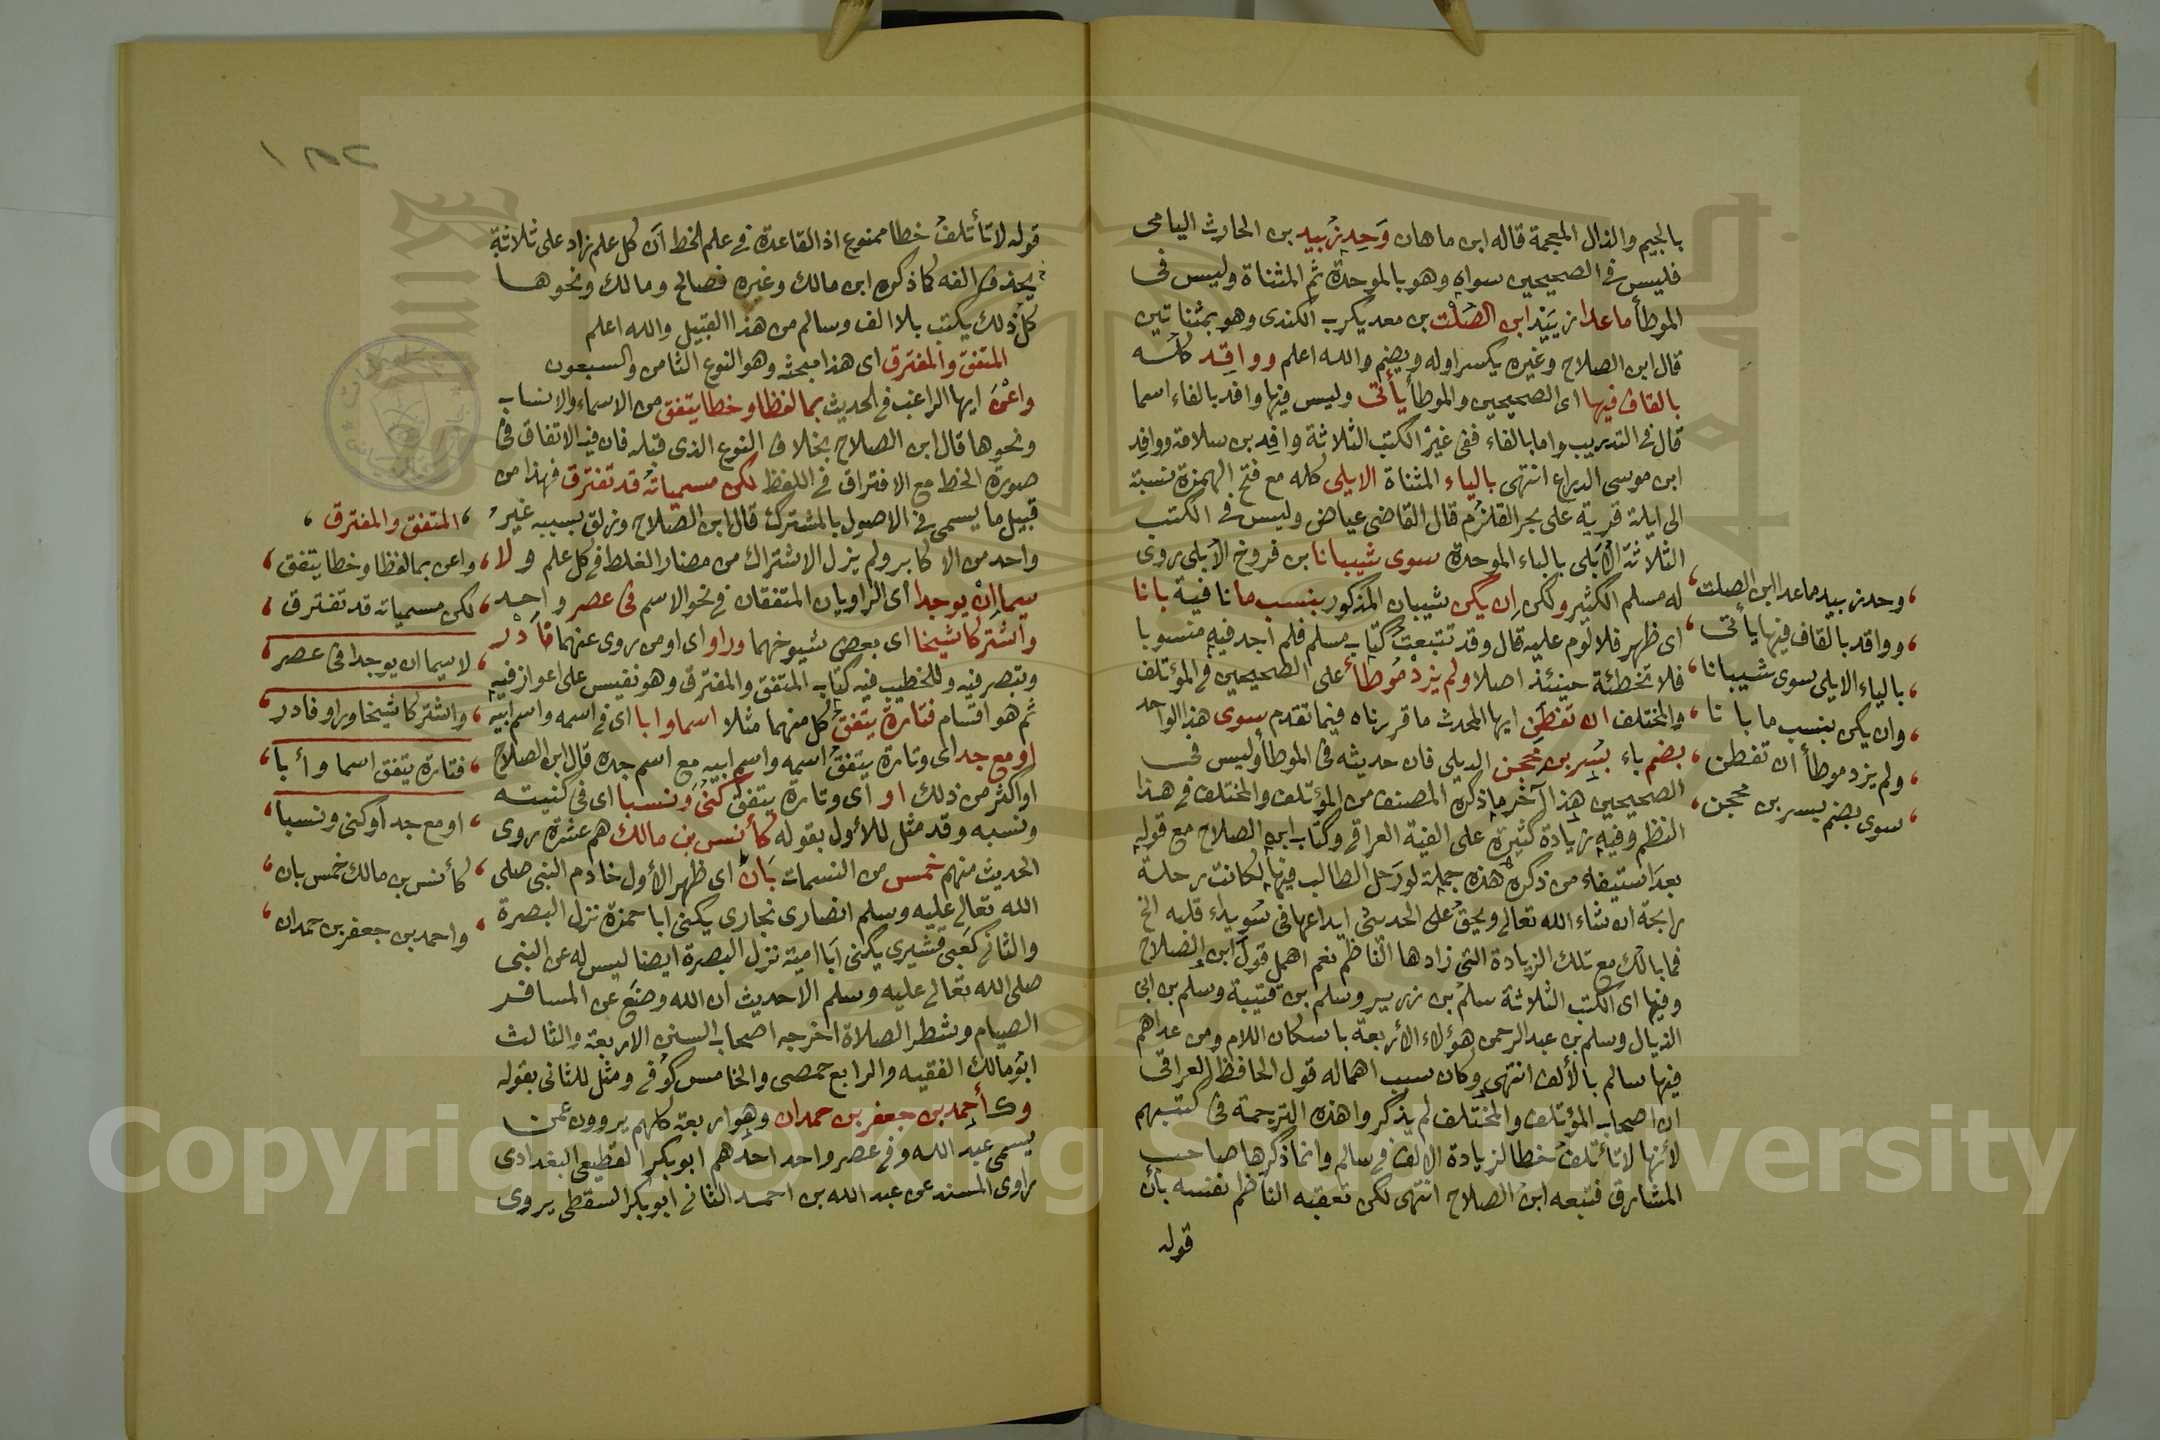 بالجيم والذال المعجمة قاله ابن ماهان وَحِد زُبيد بن الحارث اليامى
فليس فى الصحيحين سواه وهو بالموحدة ثم المثناة وليس فى
الموطأ ماعدا زيَيْد ابن الصَلْت بن معد يكرب الكندى وهو بمثناتين
قال ابن الصلاح وغيره يكسر اوله ويضم والله اعلم وواقِد كله
بالقاف فيها اى الصحيحين والموطأ يأتى وليس فيها وافد بالفاء اسما
قال فى التدريب واما بالفاء ففى غير الكتب الثلاثة وافِد بن سلامة ووافِد
ابن موسى الدراع انتهى بالياء المثناة الايلى كله مع فتح الهمزة نسبة
الى ايلة قرية على بحر القلزم قال القاضى عياض وليس فى الكتب
الثلاثة الأبلى بالباء الموحدة سوى شيبانا بن فروخ الأبلى روى
له مسلم الكثير ولكن ان يكن شيبان المذكور بنسب ما نا فية بانا
اى ظهر فلا لوم عليه قال وقد تتبعت كتاب مسلم فلم اجد فيه منسوبا
فلا تخطئة حينئذ اصلا ولم يزد مُوطأ على الصحيحين فى المؤتلف
والمختلف ان تفطَن ايها المحدث ما قررناه فيما تقدم سوى هذا الواحد
بضم باء بُسر بن محجن الديلى فان حديثه فى الموطأ وليس فى
الصحيحين هذا آخر ما ذكره المصنف من المؤتلف والمختلف فى هذا
النظم وفيه زيادة كثيرة على الفية العراقى وكتاب ابن الصلاح مع قوله
بعد استيفاء من ذكره هذه جملة لو رَحل الطالب فيها لكانت رحلة
رابحة ان شاء الله تعالى ويحق على الحديثى ايداعها فى سُويداء قلبه الخ
فما بالك مع تلك الزيادة التى زادها الناظم نعم اهمل قول ابن الصلاح
وفيها اى الكتب الثلاثة سلم بن زرير وسلم بن قتيبة وسلم بن ابى
الذيال وسلم بن عبد الرحمن هؤلاء الأربعة باسكان اللام ومن عداهم
فيها سالم بالألف انتهى وكان سبب اهماله قول الحافظ العراقى
ان اصحاب المؤتلف والمختلف لم يذكروا هذه الترجمة فى كتبهم
لأنها لا تأتلف خطا لزيادة الالف فى سالم وانما ذكرها صاحب
المشارق فتبعه ابن الصلاح انتهى لكن تعقبه الناظم نفسه بأن
قوله
وحد زبيد ماعدا ابن الصلت
وواقد بالقاف فيها يأتى
بالياء الايلى سوى شيبانا
وان يكن بنسب ما بانا
ولم يزد موطأ أن تفطن
سوى بضم بسر بن محجن
١٥٢
قوله لا تأتلف خطا ممنوع اذ القاعدة فى علم الخط أن كل علم زاد على ثلاثة
يحذف الفه كما ذكره ابن مالك وغيره فصالح ومالك ونحوها
كل ذلك يكتب بلا الف وسالم من هذا القبيل والله اعلم
المتفق والمفترق اى هذا مبحثه وهو النوع الثامن والسبعون
واعْن ايها الراغب فى الحديث بما لفظا وخطا يتفق من الاسماء والانساب
ونحوها قال ابن الصلاح بخلاف النوع الذى قبله فان فيه الاتفاق فى
صورة الخط مع الافتراق فى اللفظ لكن مسمياته قد تفترق فهذا من
قبيل ما يسمى فى الاصول بالمشترك قال ابن الصلاح وزلق بسببه غير
واحد من الاكابر ولم يزل الاشتراك من مضار الغلط فى كل علم ولا
سيما انْ يوجدا أى الراويان المتفقان فى نحو الاسم فى عصر واحد
واشتركا شيخا اى بعض شيوخهما وراو اى او من روى عنهما فادْر
وتبصر فيه وللخطيب فيه كتاب المتفق والمفترق وهو نفيس على اعواز فيه
ثم هو اقسام فتارة يتفق كل منهما مثلا اسما وابا اى فى اسمه واسم ابيه
او مع جد اى وتارة يتفق اسمه واسم ابيه مع اسم جده قال ابن الصلاح
او اكثر من ذلك او اى وتارة يتفق كُنى ونسبا اى فى كنيته
ونسبه وقد مثل للأول بقوله كأنس بن مالك هم عشرة روى
الحديث منهم خمس من النسمات بَان اى ظهر الأول خادم النبى صلى
الله تعالى عليه وسلم انصارى نجارى يكنى ابا حمزة نزل البصرة
والثانى كعبى قشيرى يكنى ابا امية نزل البصرة ايضا ليس له عن النبى
صلى الله تعالى عليه وسلم الاحديث ان الله وضع عن المسافر
الصيام وشطر الصلاة اخرجه اصحاب السنن الاربعة والثالث
ابو مالك الفقيه والرابع حمصى والخامس كوفى ومثل للثانى بقوله
وك أحمد بن جعفر بن حمدان وهو اربعة كلهم يروون عمن
يسمى عبد الله وفى عصر واحد احدهم ابو بكر القطيعى البغدادى
راوى المسند عن عبد الله بن احمد الثانى ابو بكر السقطى يروى
المتفق والمفترق
واعن بما لفظا وخطا يتفق
لكن مسمياته قد تفترق
لاسيما ان يوجدا فى عصر
واشتركا شيخا وراو فادر
فتارة يتفق اسما وأبا
او مع جد أو كنى ونسبا
كأنس بن مالك خمس بان
واحمد بن جعفر بن حمدان
Copyright © King Saud University